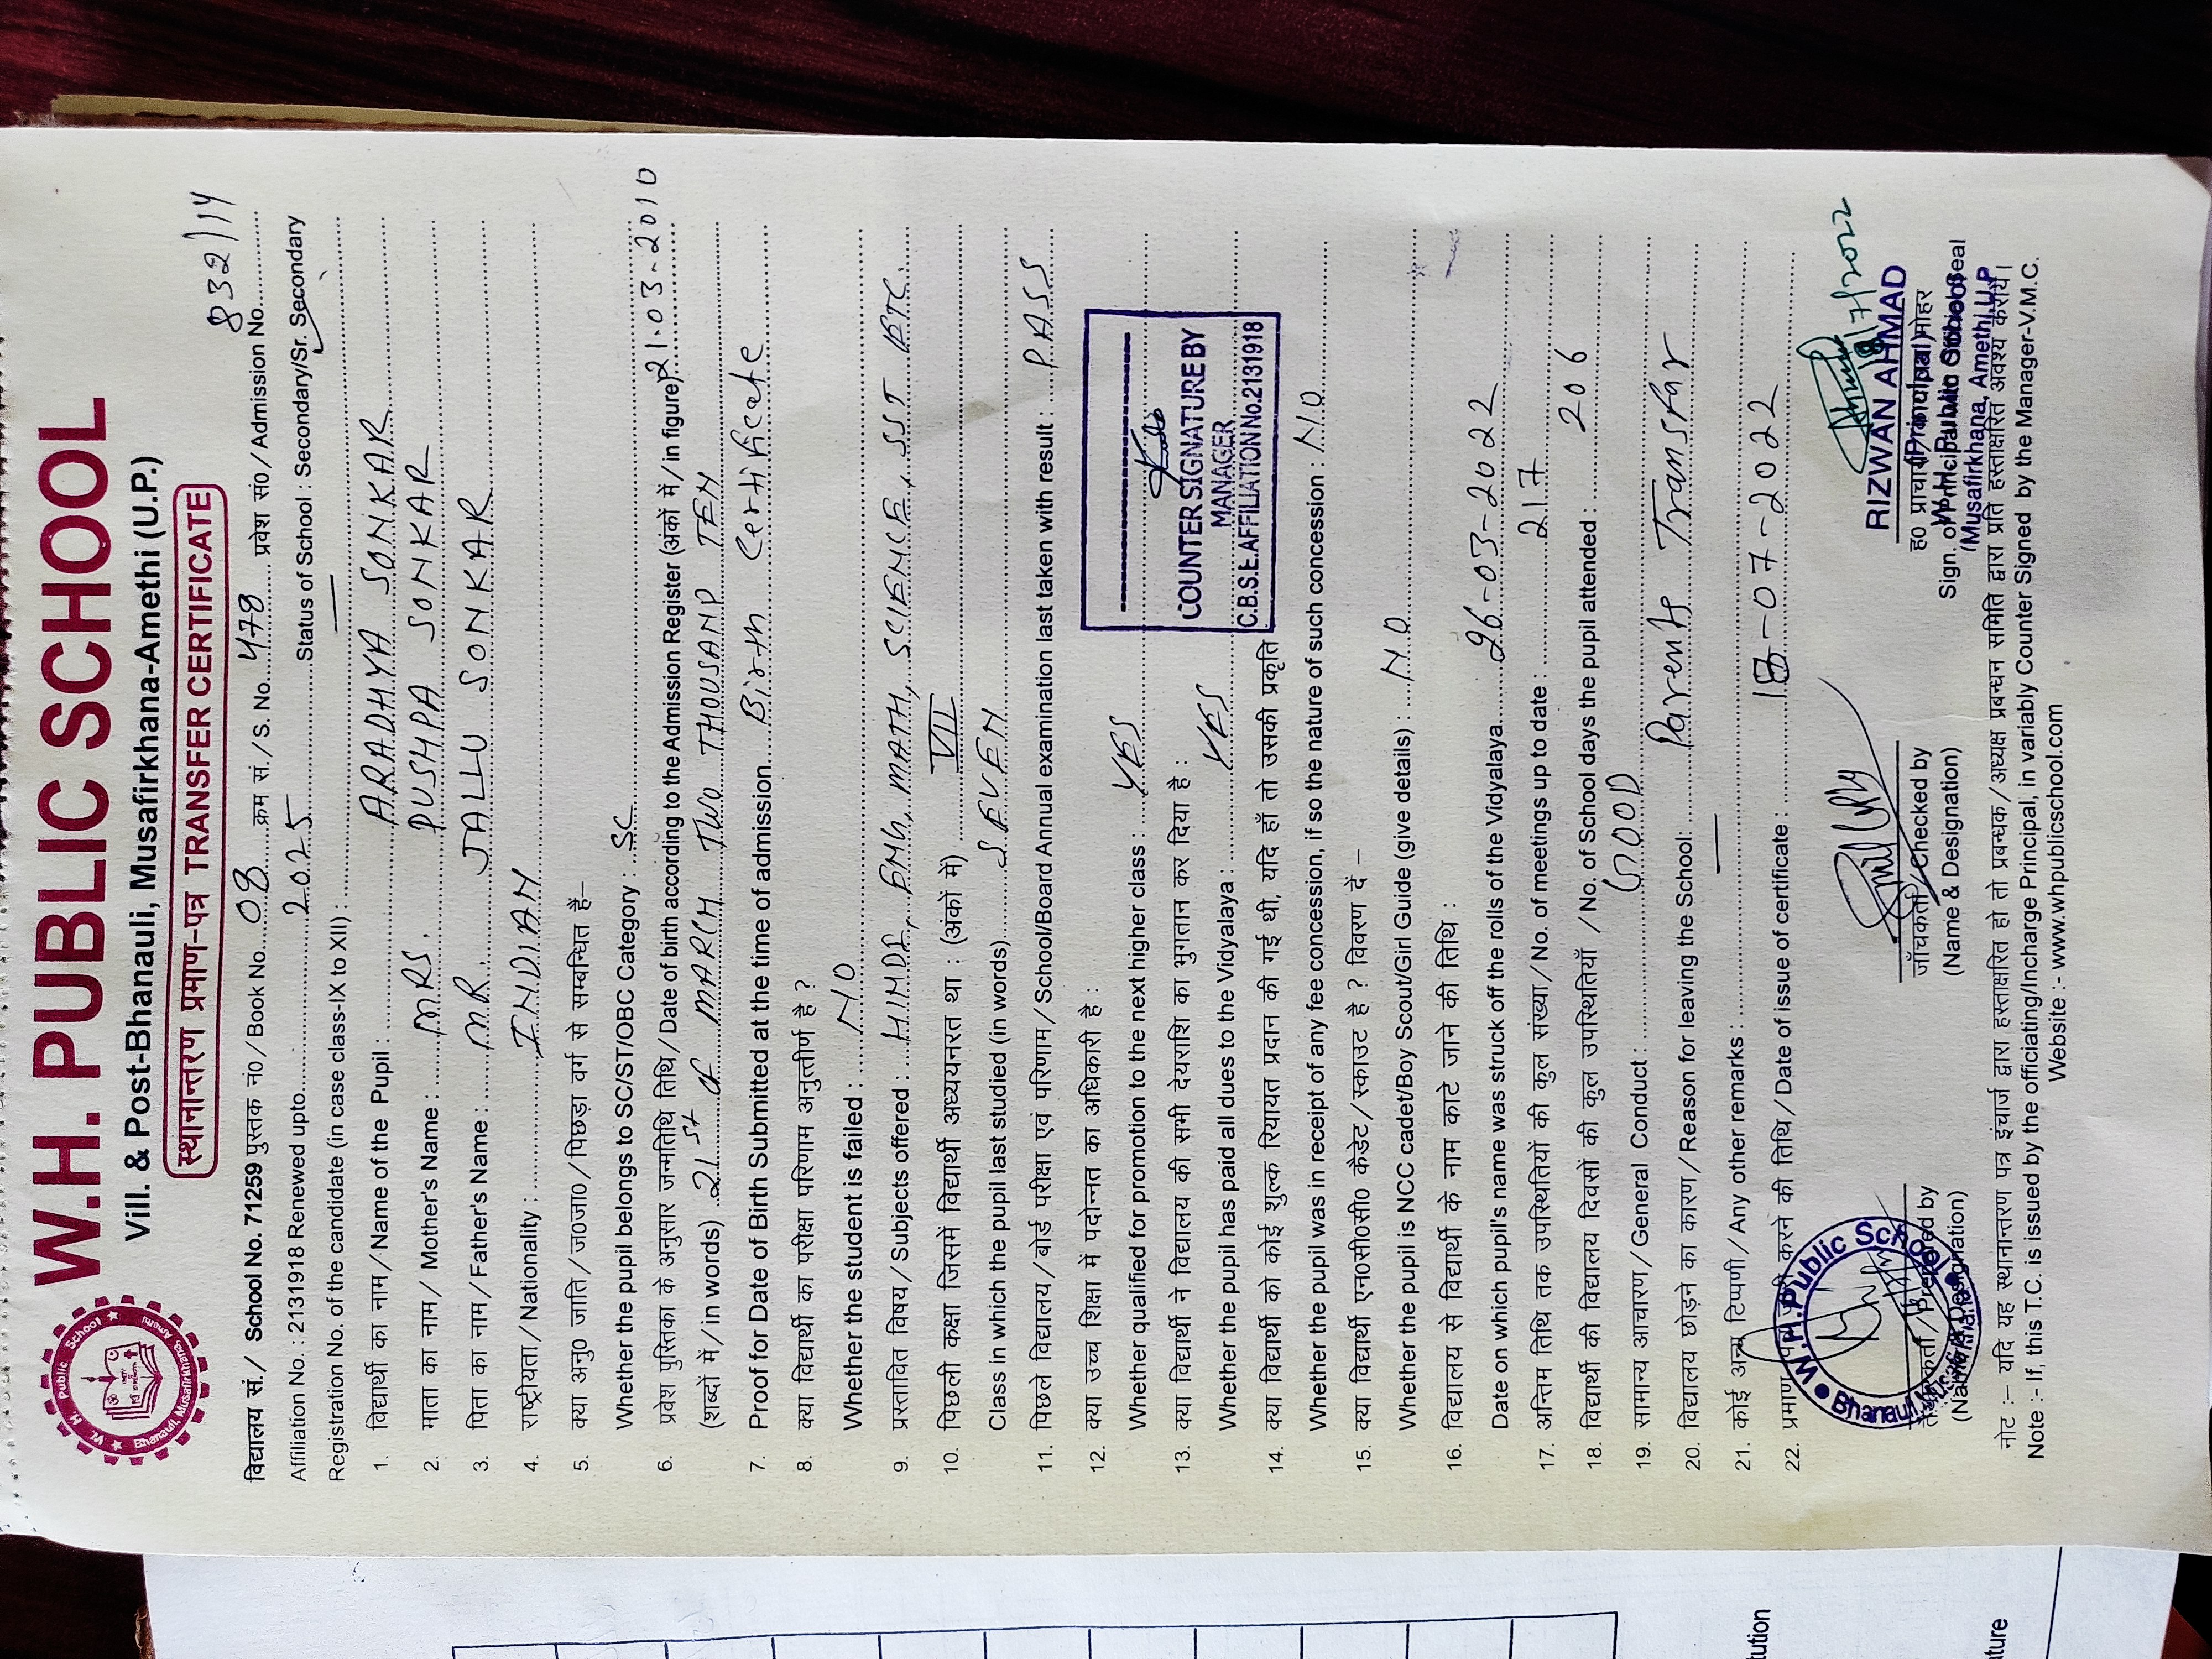 W.H. PUBLIC SCHOOL
Vill. & Post-Bhanauli, Musafirkhana-Amethi (U.P.)
स्थानान्तरण प्रमाण-पत्र TRANSFER CERTIFICATE
W. H. Public School
Bhanauli, Musafirkhana, Amethi
विद्यालय सं./ School No. 71259 पुस्तक नं०/Book No. 08 क्रम सं/S. No. 478 प्रवेश सं०/Admission No. 832/14
Affiliation No.: 2131918 Renewed upto 2025 Status of School : Secondary/Sr. Secondary
Registration No. of the candidate (in case class-IX to XII) : —
1. विद्यार्थी का नाम/Name of the Pupil : ARADHYA SONKAR
2. माता का नाम/Mother's Name : MRS. PUSHPA SONKAR
3. पिता का नाम/Father's Name : MR. JALLU SONKAR
4. राष्ट्रीयता/Nationality : INDIAN
5. क्या अनु० जाति/ज०जा०/पिछड़ा वर्ग से सम्बन्धित हैं–
Whether the pupil belongs to SC/ST/OBC Category : SC
6. प्रवेश पुस्तिका के अनुसार जन्मतिथि तिथि/Date of birth according to the Admission Register (अंकों में/in figure) 21.03.2010
(शब्दों में/in words) 21st of MARCH TWO THOUSAND TEN
7. Proof for Date of Birth Submitted at the time of admission Birth Certificate
8. क्या विद्यार्थी का परीक्षा परिणाम अनुत्तीर्ण है ?
Whether the student is failed : NO
9. प्रस्तावित विषय/Subjects offered : HINDI, ENG, MATH, SCIENCE, SST ETC.
10. पिछली कक्षा जिसमें विद्यार्थी अध्ययनरत था : (अंकों में) VII
Class in which the pupil last studied (in words) SEVEN
11. पिछले विद्यालय/बोर्ड परीक्षा एवं परिणाम/School/Board Annual examination last taken with result : PASS
12. क्या उच्च शिक्षा में पदोन्नत का अधिकारी है :
Whether qualified for promotion to the next higher class : YES
13. क्या विद्यार्थी ने विद्यालय की सभी देयराशि का भुगतान कर दिया है :
Whether the pupil has paid all dues to the Vidyalaya : YES
COUNTER SIGNATURE BY
MANAGER
C.B.S.E. AFFILIATION No. 2131918
14. क्या विद्यार्थी को कोई शुल्क रियायत प्रदान की गई थी, यदि हाँ तो उसकी प्रकृति
Whether the pupil was in receipt of any fee concession, if so the nature of such concession : NO
15. क्या विद्यार्थी एन०सी०सी० कैडेट/स्काउट है ? विवरण दें –
Whether the pupil is NCC cadet/Boy Scout/Girl Guide (give details) : NO
16. विद्यालय से विद्यार्थी के नाम काटे जाने की तिथि :
Date on which pupil's name was struck off the rolls of the Vidyalaya 26-03-2022
17. अन्तिम तिथि तक उपस्थितियों की कुल संख्या/No. of meetings up to date : 217
18. विद्यार्थी की विद्यालय दिवसों की कुल उपस्थितियाँ /No. of School days the pupil attended : 206
19. सामान्य आचारण/General Conduct : GOOD
20. विद्यालय छोड़ने का कारण/Reason for leaving the School: Parents Transfar
21. कोई अन्य टिप्पणी/Any other remarks : —
22. प्रमाण करने की तिथि/Date of issue of certificate : 18-07-2022
W.H. Public School
Bhanauli
Prepared by
(Name & Designation)
जाँचकर्ता/Checked by
(Name & Designation)
18/7/2022
RIZWAN AHMAD
(Principal)
W.H. Public School
(Musafirkhana, Amethi, U.P
ह० प्राचार्य मोहर
Sign. of Principal with Seal
नोट :– यदि यह स्थानान्तरण पत्र इंचार्ज द्वारा हस्ताक्षरित हो तो प्रबन्धक/अध्यक्ष प्रबन्धन समिति द्वारा प्रति हस्ताक्षरित अवश्य करायें।
Note :- If, this T.C. is issued by the officiating/Incharge Principal, in variably Counter Signed by the Manager-V.M.C.
Website :- www.whpublicschool.com
tution
ature